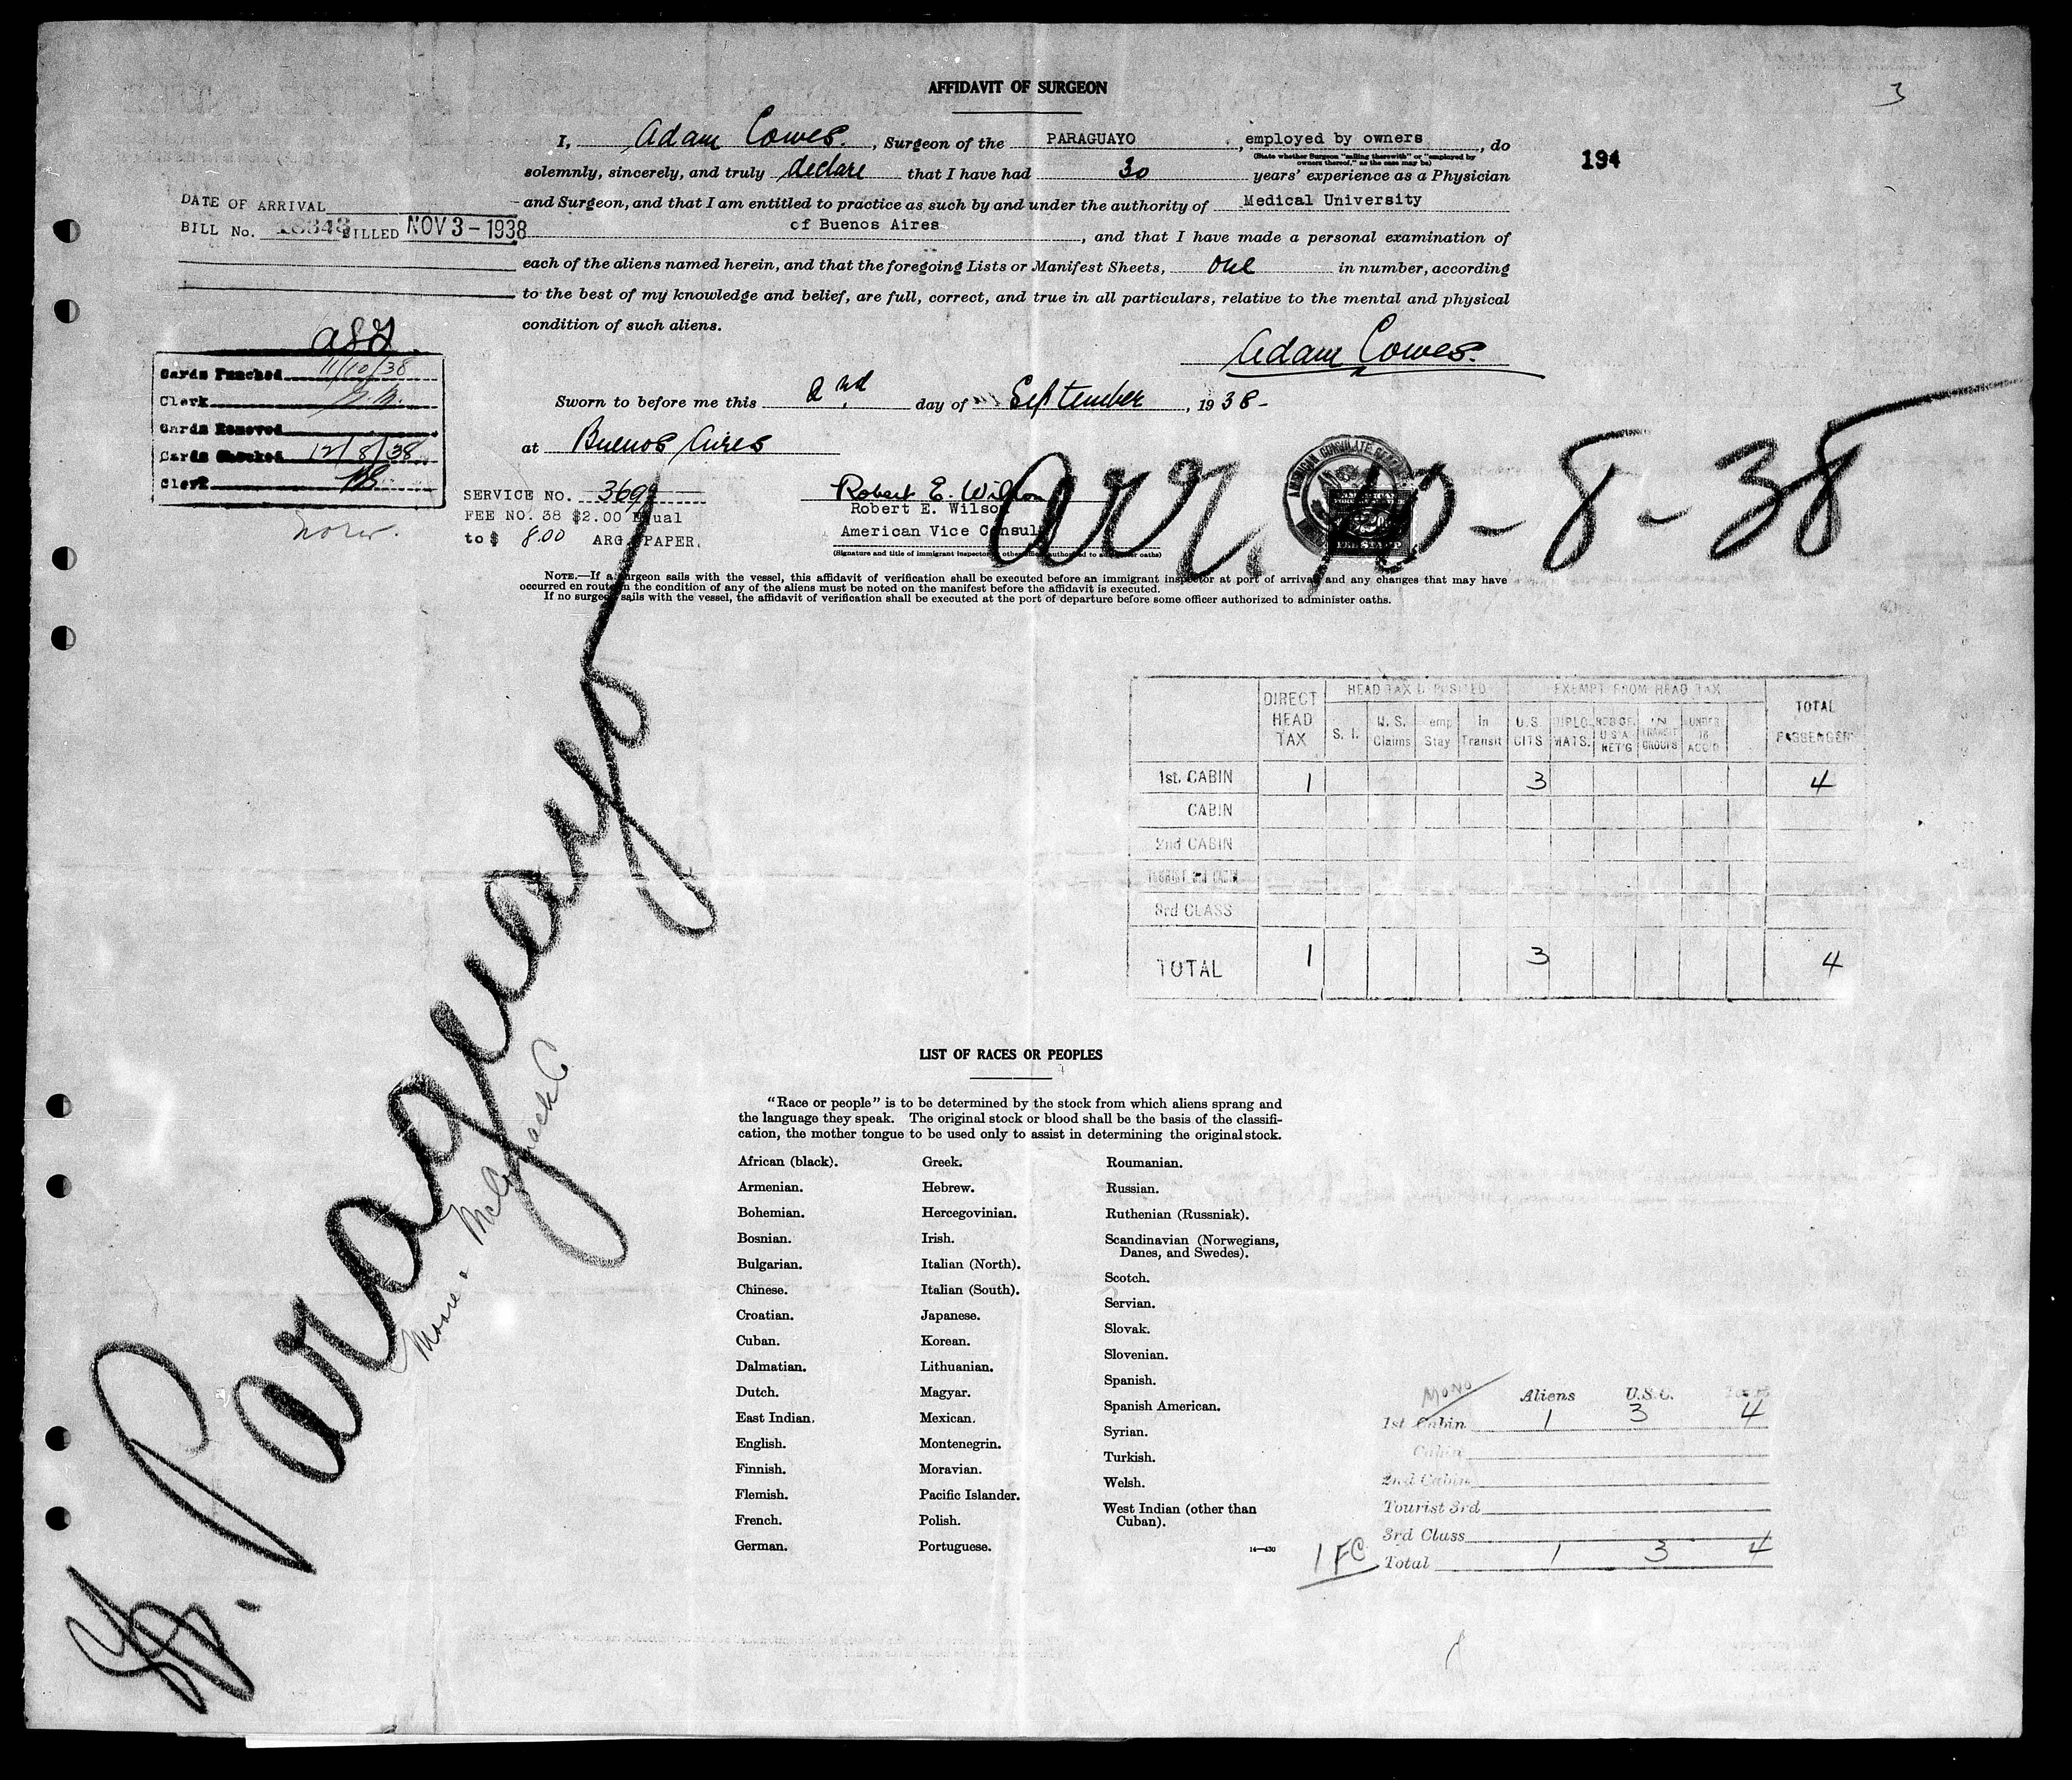 AFFIDAVIT OF SURGEON
3
I, Adam Cowes. , Surgeon of the PARAGUAYO , employed by owners , do
(State whether Surgeon "sailing therewith" or "employed by owners thereof," as the case may be)
194
solemnly, sincerely, and truly declare that I have had 30 years' experience as a Physician
and Surgeon, and that I am entitled to practice as such by and under the authority of Medical University
of Buenos Aires , and that I have made a personal examination of
each of the aliens named herein, and that the foregoing Lists or Manifest Sheets, one in number, according
to the best of my knowledge and belief, are full, correct, and true in all particulars, relative to the mental and physical
condition of such aliens.
Adam Cowes.
DATE OF ARRIVAL
BILL No. BILLED NOV 3 - 1938
Cards Punched 11/10/38
Clerk
Cards Removed
Cards Checked 12/8/38
Clerk
Sworn to before me this 2nd. day of September , 1938 -
at Buenos Aires
SERVICE NO. 3699
FEE NO. 38 $2.00 Equal
to $ 8.00 ARG. PAPER.
Robert E. Wilson
Robert E. Wilson
American Vice Consul
(Signature and title of immigrant inspector or other officer authorized to administer oaths)
arr. 10 - 8 - 38
NOTE.—If a surgeon sails with the vessel, this affidavit of verification shall be executed before an immigrant inspector at port of arrival and any changes that may have
occurred en route in the condition of any of the aliens must be noted on the manifest before the affidavit is executed.
If no surgeon sails with the vessel, the affidavit of verification shall be executed at the port of departure before some officer authorized to administer oaths.
DIRECT HEAD TAX
HEAD TAX DEPOSITED
EXEMPT FROM HEAD TAX
TOTAL PASSENGER
S. I. U. S. Claims Temp Stay In Transit U.S. CITS DIPLOMATS. RES OF U S A RET'G IN TRANSIT GROUPS UNDER 16 ACC'D
1st. CABIN 1 3 4
CABIN
2nd CABIN
TOURIST 3rd CABIN
3rd CLASS
TOTAL 1 3 4
SS. Paraguayo
Moore McCormack
LIST OF RACES OR PEOPLES
"Race or people" is to be determined by the stock from which aliens sprang and
the language they speak. The original stock or blood shall be the basis of the classifi-
cation, the mother tongue to be used only to assist in determining the original stock.
African (black).
Armenian.
Bohemian.
Bosnian.
Bulgarian.
Chinese.
Croatian.
Cuban.
Dalmatian.
Dutch.
East Indian.
English.
Finnish.
Flemish.
French.
German.
Greek.
Hebrew.
Hercegovinian.
Irish.
Italian (North).
Italian (South).
Japanese.
Korean.
Lithuanian.
Magyar.
Mexican.
Montenegrin.
Moravian.
Pacific Islander.
Polish.
Portuguese.
Roumanian.
Russian.
Ruthenian (Russniak).
Scandinavian (Norwegians,
Danes, and Swedes).
Scotch.
Servian.
Slovak.
Slovenian.
Spanish.
Spanish American.
Syrian.
Turkish.
Welsh.
West Indian (other than
Cuban).
14—430
MONO Aliens U.S.C. Total
1st Cabin 1 3 4
Cabin
2nd Cabin
Tourist 3rd
3rd Class
1 FC Total 1 3 4